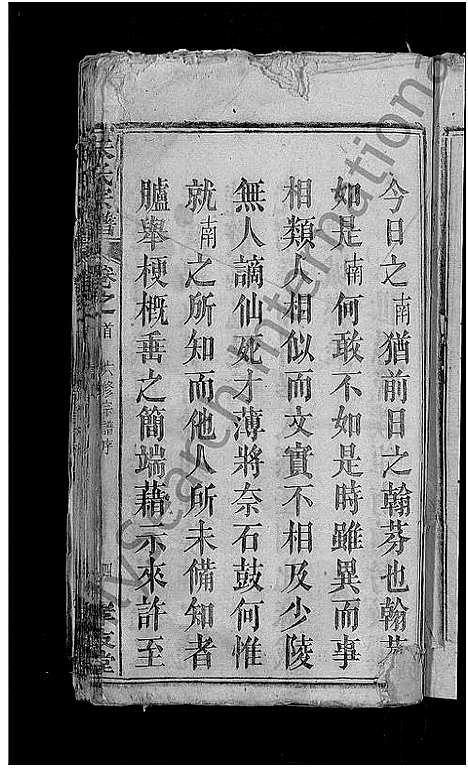 今日之南猶前日之翰芬也翰芬
如是南何敢不如是時雖異而事
相類人相似而文實不相及少陵
無人謫仙死才薄將奈石鼓何惟
就南之所知而他人所未備知者
臚舉梗概垂之簡端藉示來許至
朱氏宗譜
卷之首
修宗譜序
四
堂